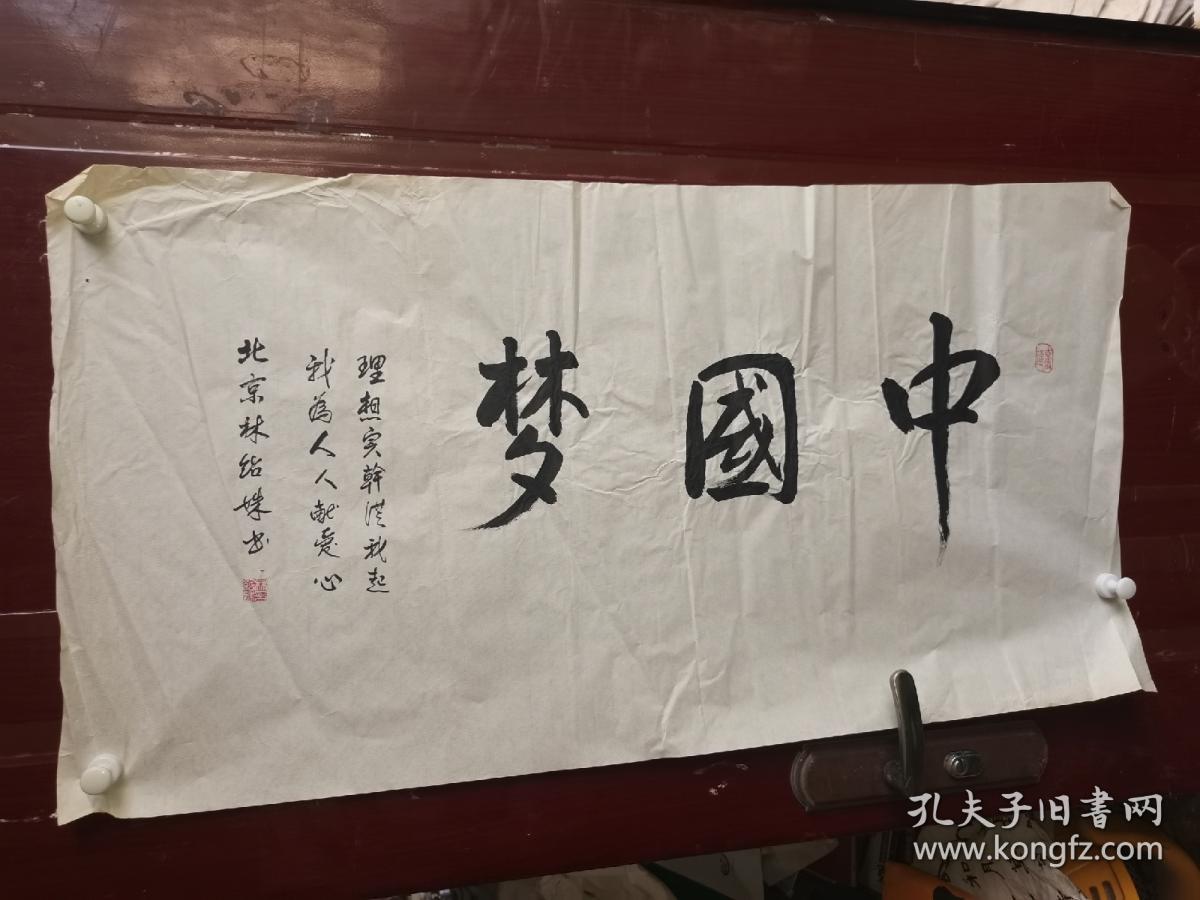 中國梦
理想实幹從我起
我為人人献愛心
北京林绍姝书
孔夫子旧書网
www.kongfz.com